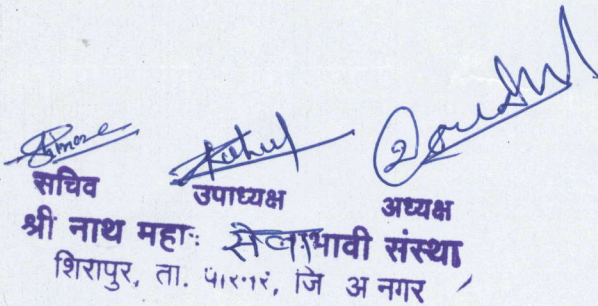 सचिव उपाध्यक्ष अध्यक्ष
श्री नाथ महा: सेवाभावी संस्था
शिरापुर, ता. पारनेर, जि अ नगर